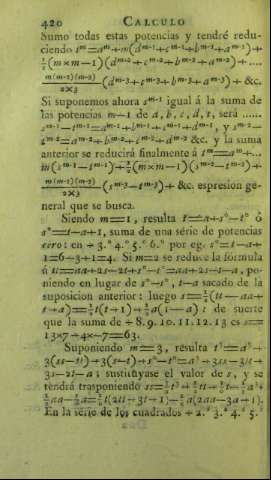 420 CALCULO
Sumo todas estas potencias y tendré redu-
ciendo tᵐ=aᵐ+m(dᵐ⁻¹+cᵐ⁻¹+bᵐ⁻¹+aᵐ⁻¹)+
½(m×m−1)(dᵐ⁻²+cᵐ⁻²+bᵐ⁻²+aᵐ⁻²)+....
m(m-1)(m-2)/2×3 (dᵐ⁻³+cᵐ⁻³+bᵐ⁻³+aᵐ⁻³)+ &c.
Si suponemos ahora sᵐ⁻¹ igual á la suma de
las potencias m−1 de a, b, c, d, t, será ......
y la suma
anterior se reducirá finalmente á tᵐ=aᵐ+...
m(sᵐ⁻¹−tᵐ⁻¹)+½(m×m−1)(sᵐ⁻²−tᵐ⁻²)+
m(m-1)(m-2)/2×3 (sᵐ⁻³−tᵐ⁻³)+ &c. espresion ge-
neral que se busca.
Siendo m=1, resulta t=a+s°−t° ó
s°=t−a+1, suma de una série de potencias
cero: en ÷ 3.° 4.° 5.° 6.° por eg. s°=t−a+
1=6−3+1=4. Si m=2 se reduce la fórmula
á tt=aa+2s−2t+s°−t°=aa+2s−t−a, po-
niendo en lugar de s°−t°, t−a sacado de la
suposicion anterior: luego s=½(tt−aa+
t+a)=½t(t+1)+½a(1−a): de suerte
que la suma de ÷ 8. 9. 10. 11. 12. 13 es s=
13×7+4×−7=63.
Suponiendo m=3, resulta t³=a³+
3(ss−tt)+3(s−t)+s°−t°=a³+3ss−3tt+
3s−2t−a; sustituyase el valor de s, y se
tendrá trasponiendo ss=⅓t³+½tt+⅙t−⅓a³+
½aa−⅙a=⅙t(2tt+3t+1)−⅙a(2aa−3a+1).
En la série de los cuadrados ÷ 2.² 3.² 4.² 5.²